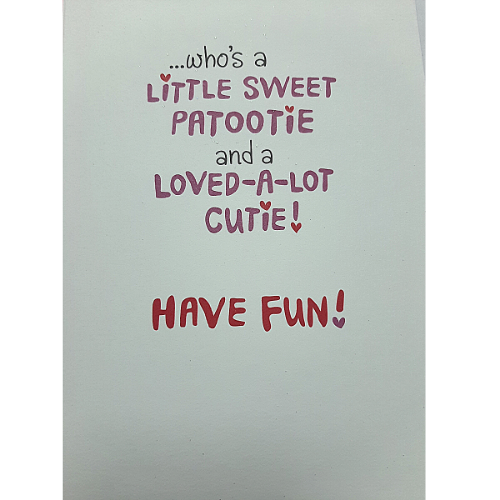 ...who's a
LiTTLE SWEET
PATOOTiE
and a
LOVED-A-LOT
CUTiE!
HAVE FUN!